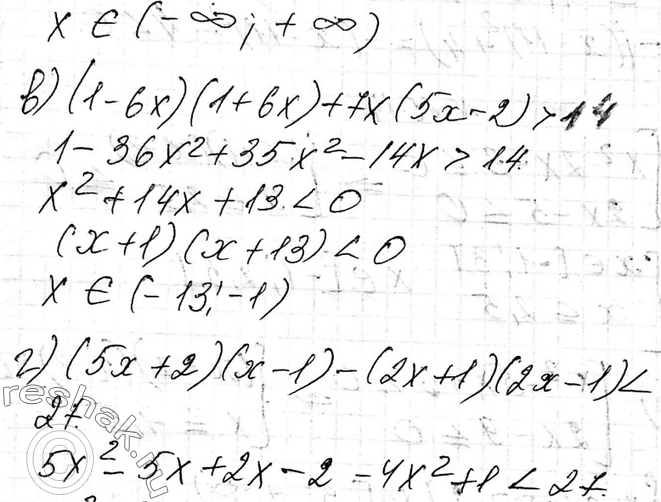 x ∈ (-∞; +∞)
в) (1-6x)(1+6x)+7x(5x-2)>14
1-36x²+35x²-14x>14
x²+14x+13<0
(x+1)(x+13)<0
x ∈ (-13;-1)
г) (5x+2)(x-1)-(2x+1)(2x-1)<
27.
5x²-5x+2x-2-4x²+1<27.
reshak.ru